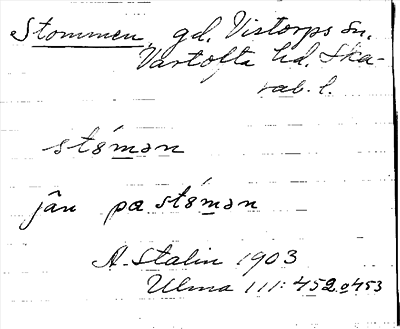 Stommen, gd, Vistorps sn,
Vartofta hd. Ska-
rab. l.
stǒ́mən
jân pα stǒ́mən
A. Stalin 1903
Ulma 111: 452 o 453